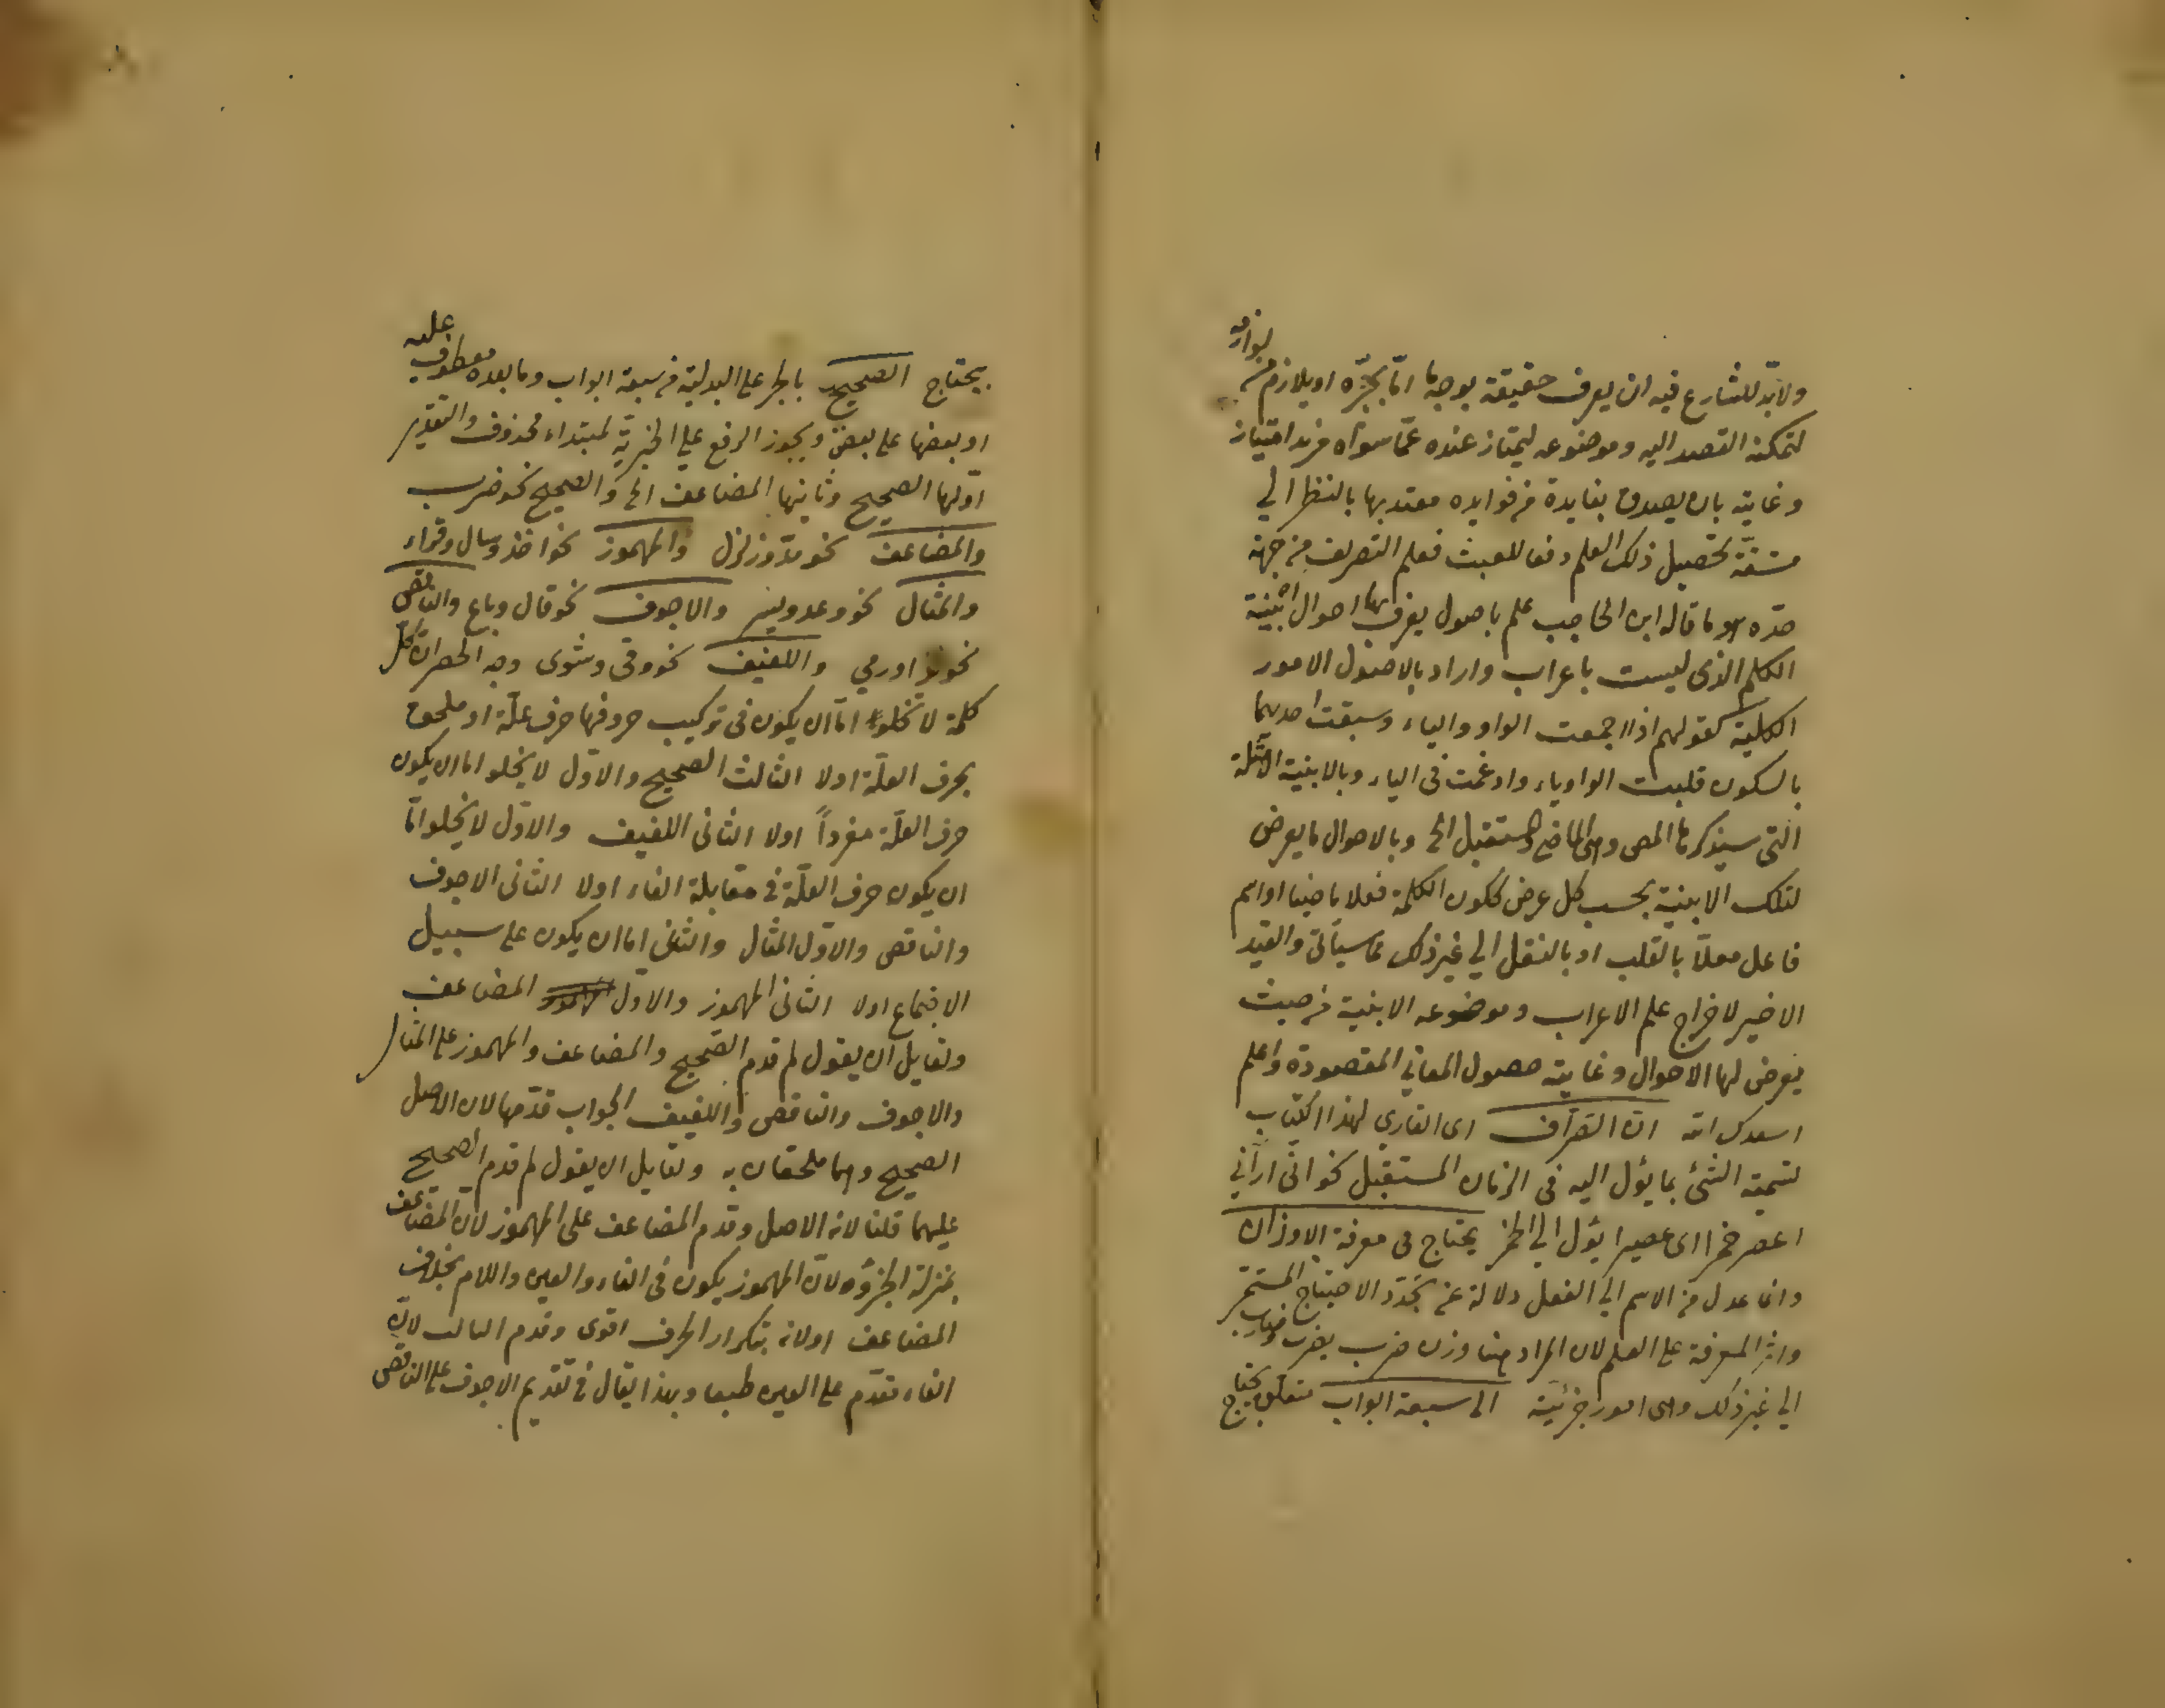 ولا بدّ للشارع فيه ان يعرف حقيقة بوجه ما امّا بحدّه او بلازم من لوازمه
لتمكنه القصد اليه وموضوعه ليمتاز عنده عمّا سواه مزيد امتياز
وغايته بان يصدق بفايدة من فوايده معتد بها بالنظر الي
مشقّة تحصيل ذلك العلم دفعا للعبث فعلم التصريف من جهة
حدّه هو ما قاله ابن الحاجب علم باصول يعرف بها احوال ابنية
الكلم الذى ليست باعراب واراد بالاصول الامور
الكلية كقولهم اذا اجمعت الواو والياء وسبقت احديهما
بالسكون قلبت الواو ياء وادغمت فى الياء وبالابنية الامثلة
التى سيذكرها المص وهى الماضى والمستقبل الخ وبالاحوال ما يعرض
لتلك الابنية بحسب كل عرض ككون الكلمة فعلا ماضيا او اسم
فاعل معلّا بالقلب او بالنقل الي غير ذلك مما سيأتى والقيد
الاخير لاخراج علم الاعراب وموضوعه الابنية من حيث
يعرض لها الاحوال وغايته حصول المعاني المقصودة واعلم
اسعدك الله ان الصّراف اى القاري لهذا الكتاب
تسمية الشئ بما يؤل اليه فى الزمان المستقبل نحو انّى ارٰاني
اعصر خمرا اى عصيرا يؤل الي الخمر يحتاج فى معرفة الاوزان
وانما عدل من الاسم الي الفعل دلالة عن تجدّد الاحتياج المستمر
واثر المعرفة على العلم لان المراد هنا وزن ضرب يضرب وضارب
الي غير ذلك وهى امور جزئية الى سبعة ابواب متعلق بيحتاج
بيحتاج الصحيح بالجر على البدلية من سبعة ابواب وما بعده معطوف عليه
او بعضها على بعض ويجوز الرفع على الخبرية لمبتداء محذوف والتقدير
اوّلها الصحيح وثانيها المضاعف الخ والصحيح نحو ضرب
والمضاعف نحو مدّ وزلزل والمهموز نحو اخذ وسال وقراء
والمثال نحو وعد ويسر والاجوف نحو قال وباع والناقص
نحو غزا ورمي واللفيف نحو وقى وشوى وجه الحصر ان كل
كلمة لا تخلو اما ان يكون فى تركيب حروفها حرف علّة او ملحق
بحرف العلّة اولا الثالث الصحيح والاوّل لا يخلو اما ان يكون
حرف العلّة مفرداً اولا الثانى اللفيف والاوّل لا يخلو امّا
ان يكون حرف العلّة فى مقابلة الفاء اولا الثانى الاجوف
والناقص والاوّل المثال والثانى اما ان يكون على سبيل
الاجتماع اولا الثانى المهموز والاول المضاعف
ولقايل ان يقول لم قدم الصحيح والمضاعف والمهموز على المثال
والاجوف والناقص واللفيف الجواب قدّمها لان الاصل
الصحيح وهما ملحقان به ولقايل ان يقول لم قدم الصحيح
عليهما قلنا لانه الاصل وقدم المضاعف على المهموز لان المضاعف
بمنزلة الجزؤه لان المهموز يكون فى الفاء والعين واللام بخلاف
المضاعف اولانه بتكرار الحرف اقوى وقدم المثال لان
الفاء تقدّم على العين طبعا وبهذا يقال فى تقديم الاجوف على الناقص